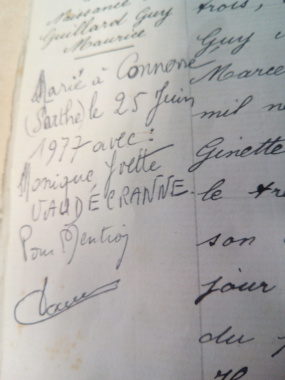 Naissance
Guillard Guy
Maurice
Marié à Connerré
(Sarthe) le 25 Juin
1977 avec :
Monique Yvette
VAUDÉCRANNE.
Pour Mention
trois,
Guy
Marce
mil n
Ginette
le tre
son
jour
du